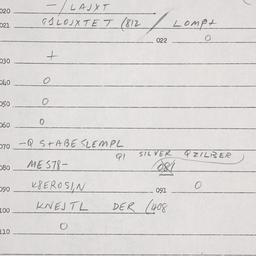 020 - / LAJXT
021 G1LOJXTET (812 / LOMPT
022 0
030 +
040 0
050 0
060 0
070 -Q S+ABESLEMPL
Q1 SILVER QZILBER)
080 MEST8- (081
090 K8EROSI,N 091 0
100 KNEJTL DER (408
110 0